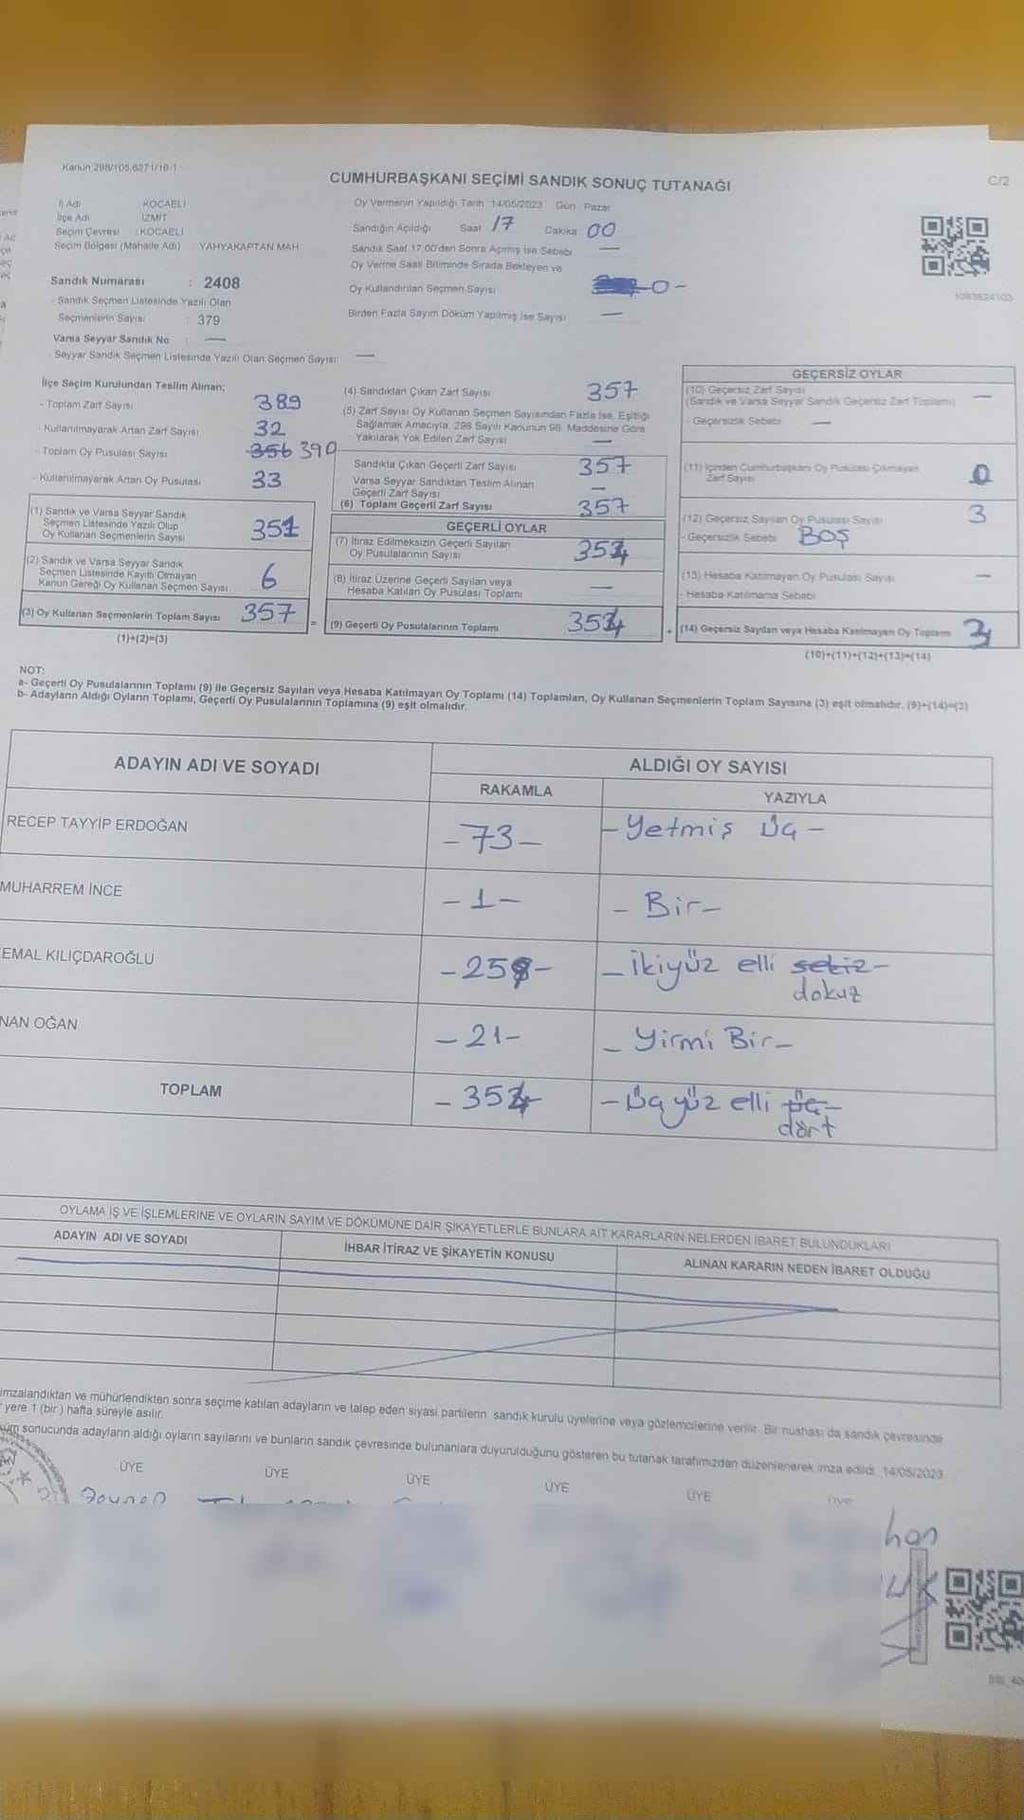 Kanun 298/105,6271/16-1
CUMHURBAŞKANI SEÇİMİ SANDIK SONUÇ TUTANAĞI
C/2
İl Adı KOCAELİ
İlçe Adı İZMİT
Seçim Çevresi : KOCAELİ
Seçim Bölgesi (Mahalle Adı) : YAHYAKAPTAN MAH.
Sandık Numarası : 2408
- Sandık Seçmen Listesinde Yazılı Olan
Seçmenlerin Sayısı : 379
Varsa Seyyar Sandık No : —
Seyyar Sandık Seçmen Listesinde Yazılı Olan Seçmen Sayısı —
Oy Vermenin Yapıldığı Tarih 14/05/2023 Gün Pazar
Sandığın Açıldığı Saat 17 Dakika 00
Sandık Saat 17:00'den Sonra Açılmış İse Sebebi —
Oy Verme Saati Bitiminde Sırada Bekleyen ve
Oy Kullandırılan Seçmen Sayısı 0 -
Birden Fazla Sayım Döküm Yapılmış İse Sayısı —
1093624103
İlçe Seçim Kurulundan Teslim Alınan;
- Toplam Zarf Sayısı 389
- Kullanılmayarak Artan Zarf Sayısı 32
- Toplam Oy Pusulası Sayısı 356 390
- Kullanılmayarak Artan Oy Pusulası 33
(1) Sandık ve Varsa Seyyar Sandık
Seçmen Listesinde Yazılı Olup
Oy Kullanan Seçmenlerin Sayısı 351
(2) Sandık ve Varsa Seyyar Sandık
Seçmen Listesinde Kayıtlı Olmayan
Kanun Gereği Oy Kullanan Seçmen Sayısı 6
(3) Oy Kullanan Seçmenlerin Toplam Sayısı 357
(1)+(2)=(3)
(4) Sandıktan Çıkan Zarf Sayısı 357
(5) Zarf Sayısı Oy Kullanan Seçmen Sayısından Fazla İse, Eşitliği
Sağlamak Amacıyla, 298 Sayılı Kanunun 98. Maddesine Göre
Yakılarak Yok Edilen Zarf Sayısı —
Sandıkta Çıkan Geçerli Zarf Sayısı 357
Varsa Seyyar Sandıktan Teslim Alınan
Geçerli Zarf Sayısı —
(6) Toplam Geçerli Zarf Sayısı 357
GEÇERLİ OYLAR
(7) İtiraz Edilmeksizin Geçerli Sayılan
Oy Pusulalarının Sayısı 354
(8) İtiraz Üzerine Geçerli Sayılan veya
Hesaba Katılan Oy Pusulası Toplamı —
= (9) Geçerli Oy Pusulalarının Toplamı 354
GEÇERSİZ OYLAR
(10) Geçersiz Zarf Sayısı
(Sandık ve Varsa Seyyar Sandık Geçersiz Zarf Toplamı) —
- Geçersizlik Sebebi —
(11) İçinden Cumhurbaşkanı Oy Pusulası Çıkmayan
Zarf Sayısı 0
(12) Geçersiz Sayılan Oy Pusulası Sayısı 3
- Geçersizlik Sebebi BOŞ
(13) Hesaba Katılmayan Oy Pusulası Sayısı —
- Hesaba Katılmama Sebebi
+ (14) Geçersiz Sayılan veya Hesaba Katılmayan Oy Toplamı 3
(10)+(11)+(12)+(13)=(14)
NOT:
a- Geçerli Oy Pusulalarının Toplamı (9) ile Geçersiz Sayılan veya Hesaba Katılmayan Oy Toplamı (14) Toplamları, Oy Kullanan Seçmenlerin Toplam Sayısına (3) eşit olmalıdır. (9)+(14)=(3)
b- Adayların Aldığı Oyların Toplamı, Geçerli Oy Pusulalarının Toplamına (9) eşit olmalıdır.
ADAYIN ADI VE SOYADI
ALDIĞI OY SAYISI
RAKAMLA YAZIYLA
RECEP TAYYİP ERDOĞAN - 73 - - Yetmiş Üç -
MUHARREM İNCE - 1 - - Bir -
EMAL KILIÇDAROĞLU - 259 - - İkiyüz elli sekiz -
dokuz
NAN OĞAN - 21 - - Yirmi Bir -
TOPLAM - 354 - - Üçyüz elli üç -
dört
OYLAMA İŞ VE İŞLEMLERİNE VE OYLARIN SAYIM VE DÖKÜMÜNE DAİR ŞİKAYETLERLE BUNLARA AİT KARARLARIN NELERDEN İBARET BULUNDUKLARI
ADAYIN ADI VE SOYADI İHBAR İTİRAZ VE ŞİKAYETİN KONUSU ALINAN KARARIN NEDEN İBARET OLDUĞU
imzalandıktan ve mühürlendikten sonra seçime katılan adayların ve talep eden siyasi partilerin sandık kurulu üyelerine veya gözlemcilerine verilir. Bir nüshası da sandık çevresinde
yere 1 (bir) hafta süreyle asılır.
sonucunda adayların aldığı oyların sayılarını ve bunların sandık çevresinde bulunanlara duyurulduğunu gösteren bu tutanak tarafımızdan düzenlenerek imza edildi. 14/05/2023
ÜYE ÜYE ÜYE ÜYE ÜYE
han